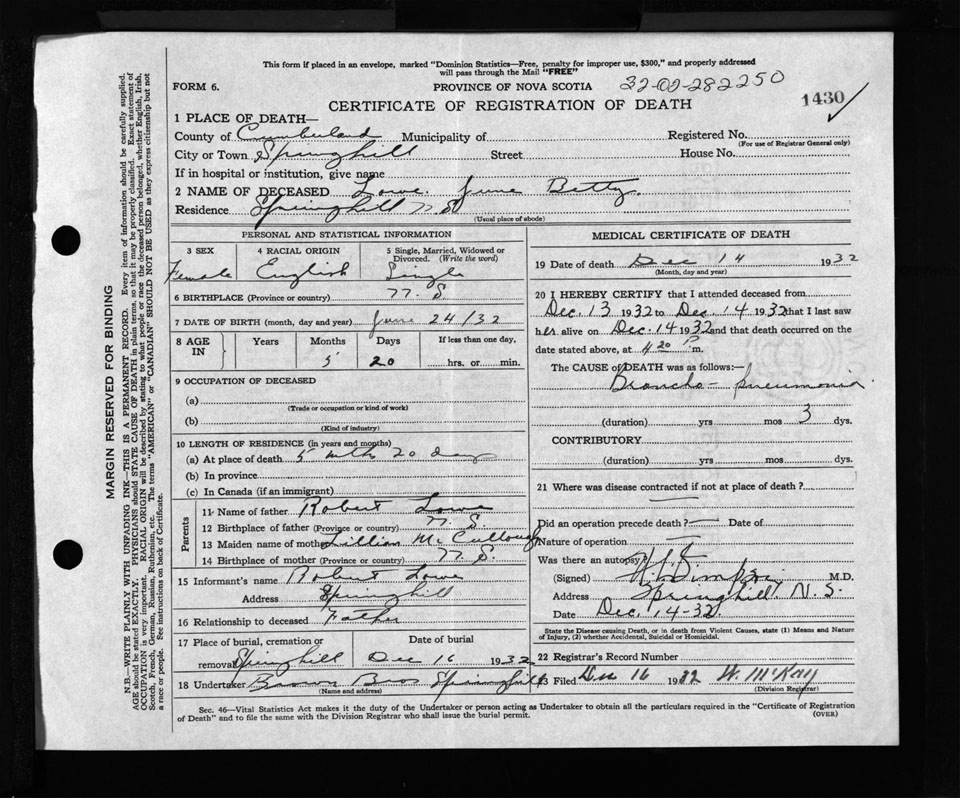 This form if placed in an envelope, marked "Dominion Statistics—Free, penalty for improper use, $300," and properly addressed
will pass through the Mail "FREE"
FORM 6.
PROVINCE OF NOVA SCOTIA
32-02-282250
1430
CERTIFICATE OF REGISTRATION OF DEATH
1 PLACE OF DEATH—
County of Cumberland Municipality of
Registered No.
(For use of Registrar General only)
City or Town Springhill Street House No.
If in hospital or institution, give name
2 NAME OF DECEASED Lowe. June Betty.
Residence Springhill N.S
(Usual place of abode)
PERSONAL AND STATISTICAL INFORMATION
3 SEX 4 RACIAL ORIGIN 5 Single, Married, Widowed or
Divorced. (Write the word)
Female English Single
6 BIRTHPLACE (Province or country) N. S.
7 DATE OF BIRTH (month, day and year) June 24/32
8 AGE IN Years Months Days If less than one day,
5 20 hrs. or min.
9 OCCUPATION OF DECEASED
(a)
(Trade or occupation or kind of work)
(b)
(Kind of industry)
10 LENGTH OF RESIDENCE (in years and months)
(a) At place of death 5 mths 20 days
(b) In province
(c) In Canada (if an immigrant)
Parents
11 Name of father Robert Lowe
12 Birthplace of father (Province or country) N. S.
13 Maiden name of mother Lillian McCullough
14 Birthplace of mother (Province or country) N. S.
15 Informant's name Robert Lowe
Address Springhill
16 Relationship to deceased Father
17 Place of burial, cremation or Date of burial
removal Springhill Dec 16 1932
18 Undertaker Brown Bros Springhill
(Name and address)
MEDICAL CERTIFICATE OF DEATH
19 Date of death Dec 14 1932
(Month, day and year)
20 I HEREBY CERTIFY that I attended deceased from
Dec. 13 1932 to Dec. 14 1932 that I last saw
her alive on Dec. 14 1932 and that death occurred on the
date stated above, at 4.20 P m.
The CAUSE of DEATH was as follows:—
Broncho-pneumonia.
(duration) yrs mos 3 dys.
CONTRIBUTORY
(duration) yrs mos dys.
21 Where was disease contracted if not at place of death?
Did an operation precede death?— Date of
Nature of operation
Was there an autopsy
(Signed) M.D.
Address Springhill N. S.
Date Dec. 14-32
State the Disease causing Death, or in death from Violent Causes, state (1) Means and Nature
of Injury, (2) whether Accidental, Suicidal or Homicidal.
22 Registrar's Record Number
23 Filed Dec 16 1932 W. McKay
(Division Registrar)
Sec. 46—Vital Statistics Act makes it the duty of the Undertaker or person acting as Undertaker to obtain all the particulars required in the "Certificate of Registration
of Death" and to file the same with the Division Registrar who shall issue the burial permit.
(OVER)
MARGIN RESERVED FOR BINDING
N.B.—WRITE PLAINLY WITH UNFADING INK—THIS IS A PERMANENT RECORD. Every item of information should be carefully supplied.
AGE should be stated EXACTLY. PHYSICIANS should STATE CAUSE OF DEATH in plain terms, so that it may be properly classified. Exact statement of
OCCUPATION is very important. RACIAL ORIGIN will be described by stating to what people or race the deceased person belonged, whether English, Irish,
Scotch, French, German, Russian, Ruthenian, etc. The terms "AMERICAN" or "CANADIAN" SHOULD NOT BE USED as they express citizenship but not
a race or people. See instructions on back of Certificate.